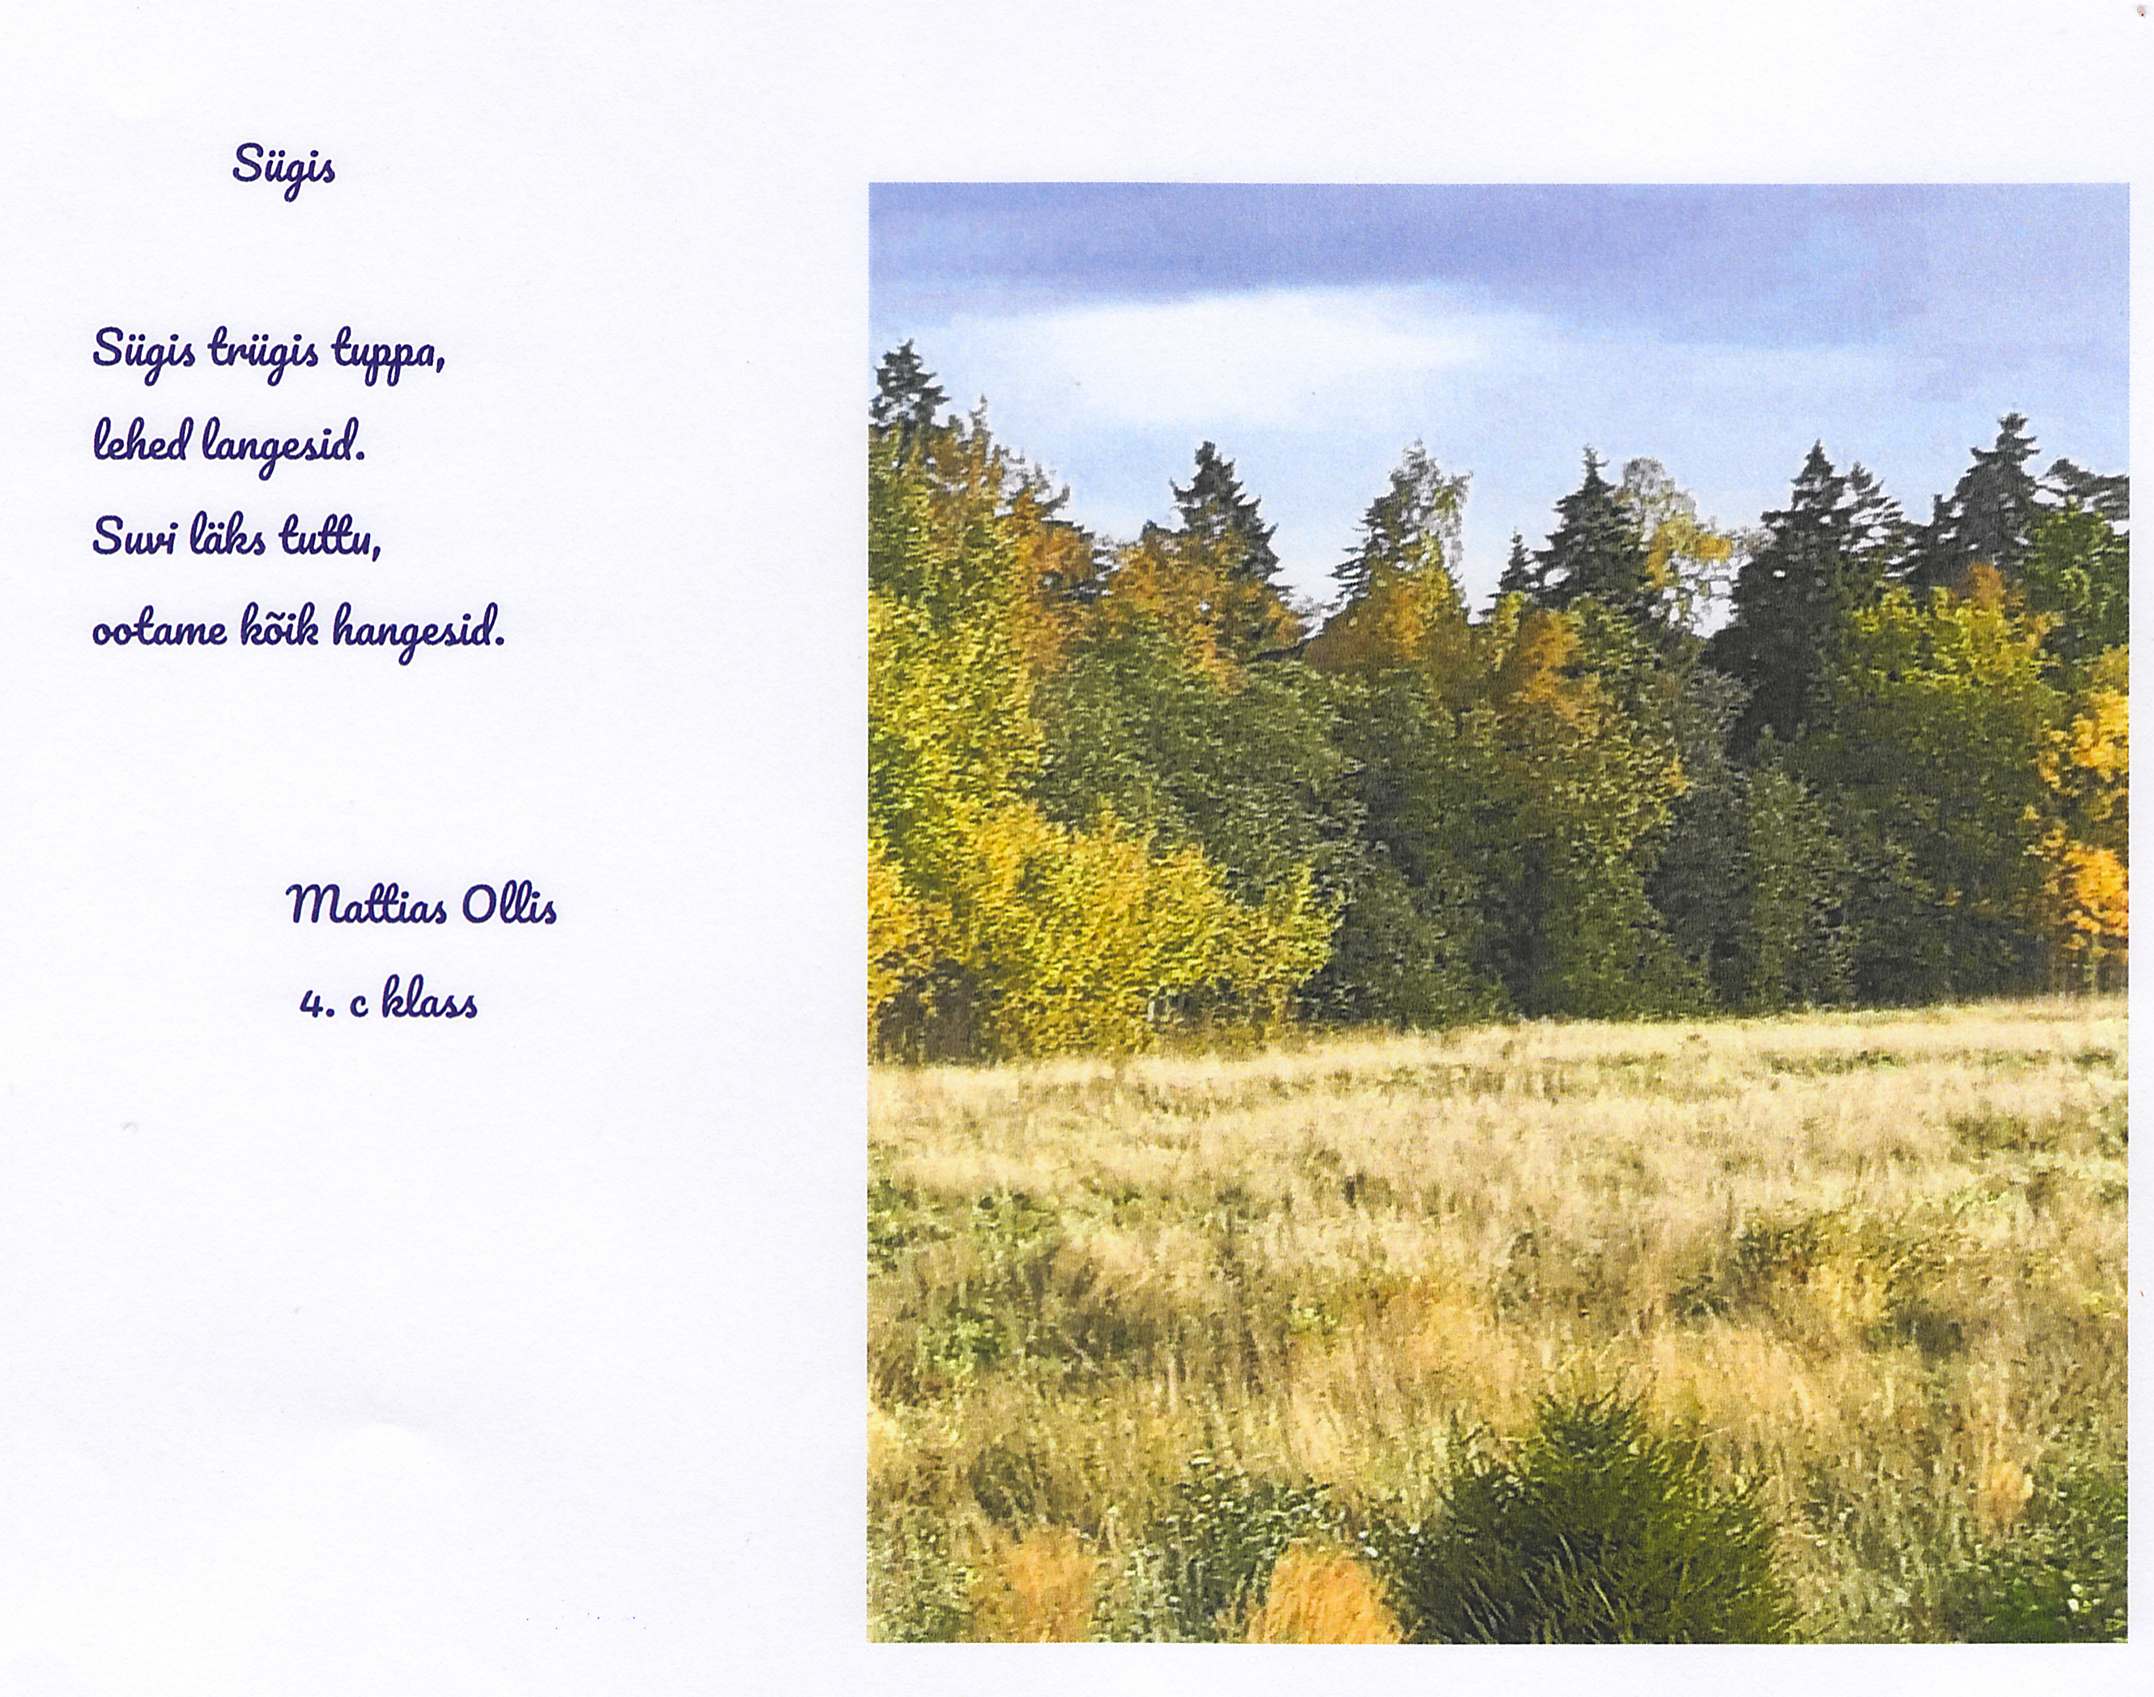 Sügis
Sügis trügis tuppa,
lehed langesid.
Suvi läks tuttu,
ootame kõik hangesid.
Mattias Ollis
4. c klass